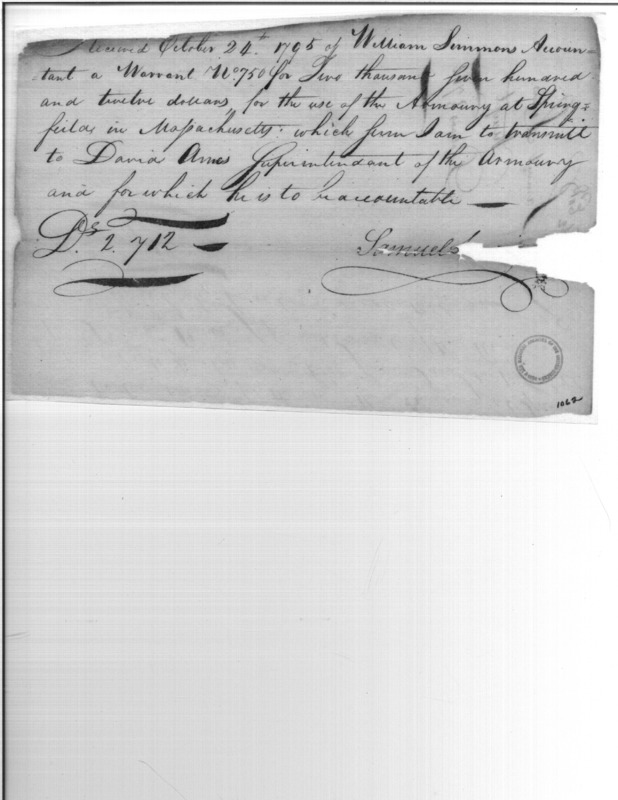 Received October 24th. 1795 of William Simmons Accoun-
-tant a Warrant No. 750 for Two thousand seven hundred
and twelve dollars, for the use of the Armoury at Spring=
field in Massachusetts. which sum I am to transmitt
to David Ames Superintendant of the Armoury
and for which he is to be accountable —
Ds. 2.712
Samuel
1062